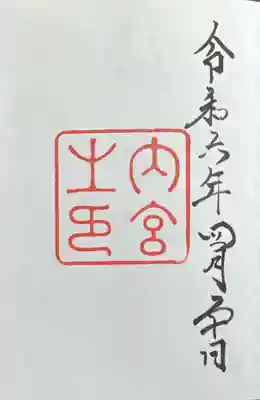 令和六年四月
内宮
之印